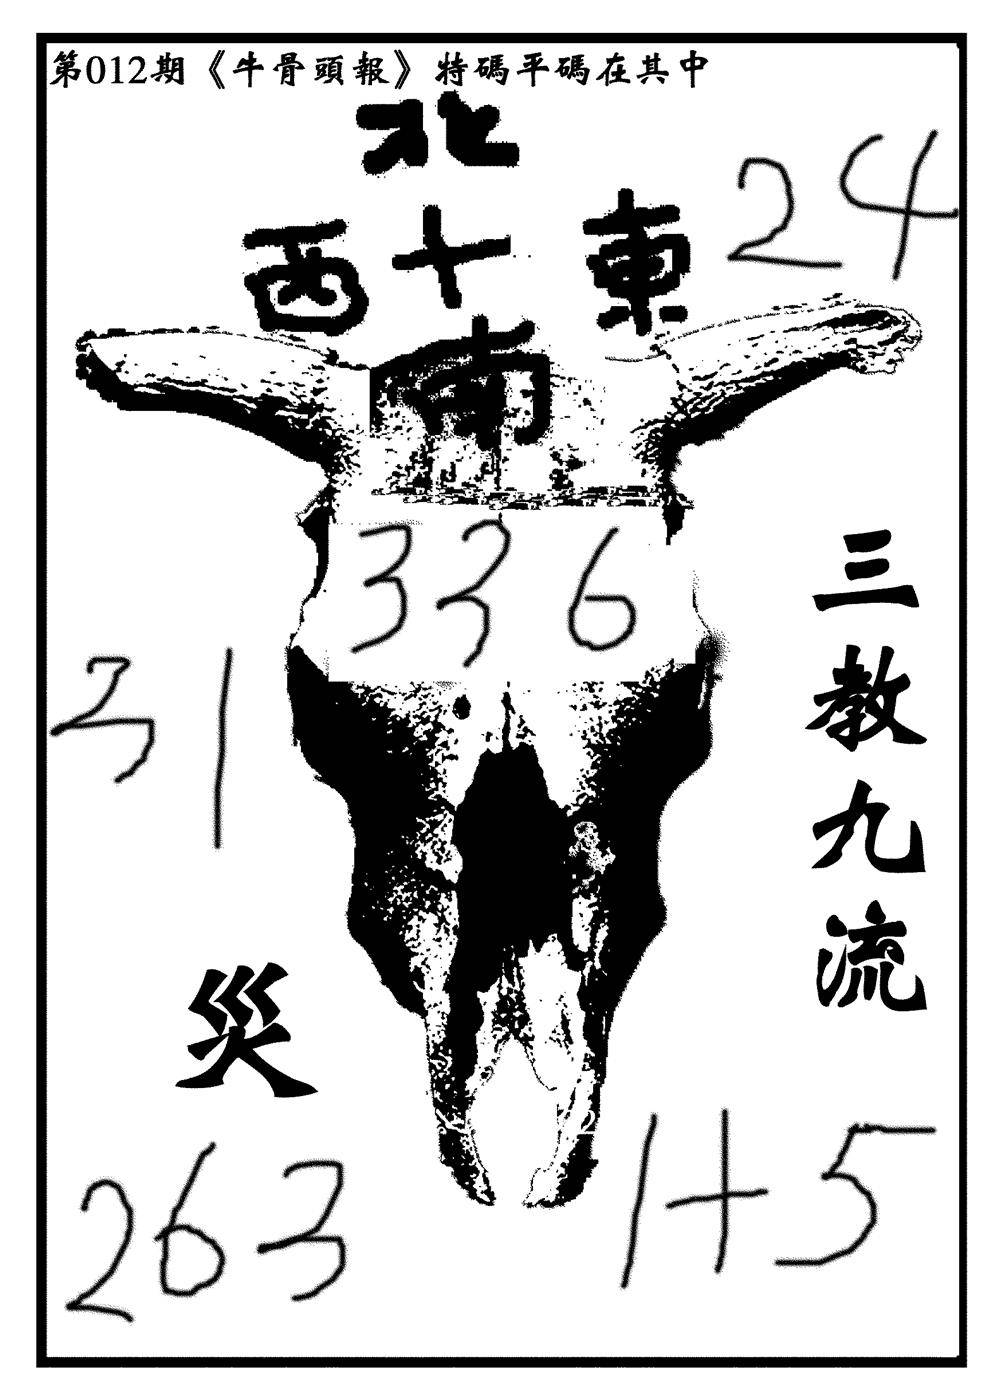 第012期《牛骨頭報》特碼平碼在其中
北
24
西十東
南
336
三教九流
31
災
263
1+5